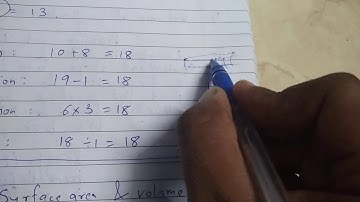 = 13
10 + 8 = 18
19 - 1 = 18
6 × 3 = 18
18 ÷ 1 = 18
Surface area & volume